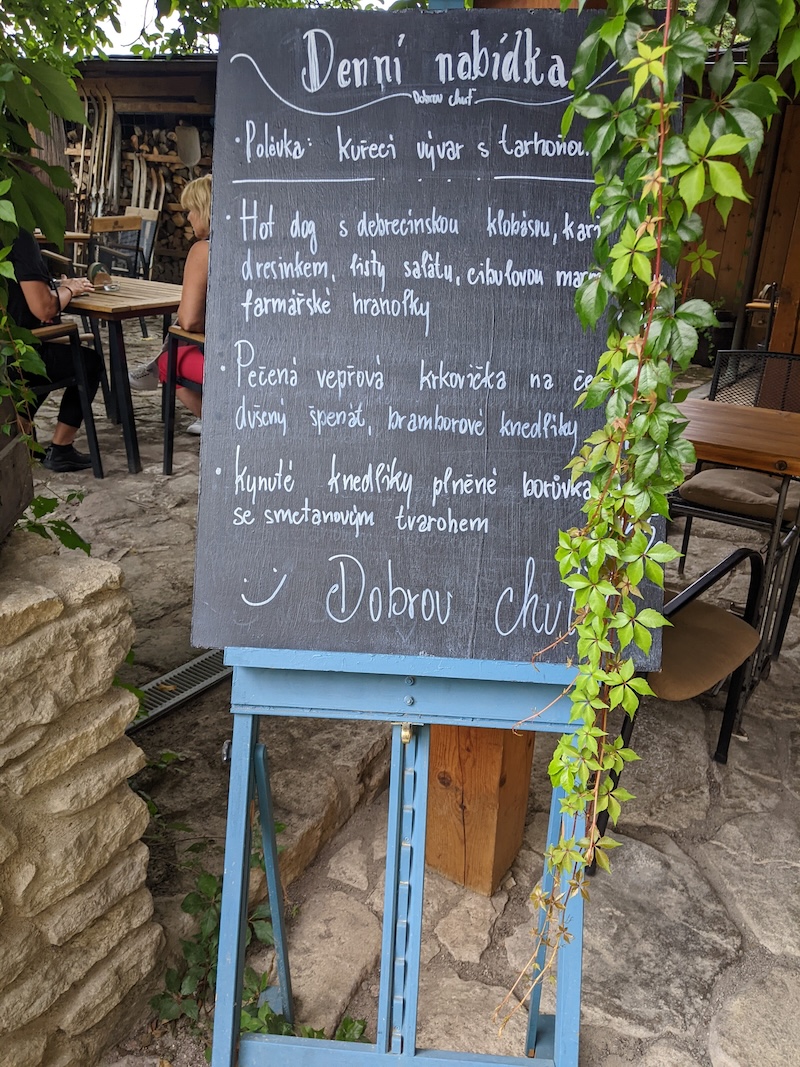 Denní nabídka
Dobrou chuť
• Polévka: Kuřecí vývar s tarhoňou
• Hot dog s debrecínskou klobásou,
dresinkem, listy salátu, cibulovou
farmářské hranolky
• Pečená vepřová krkovička na
dušený špenát, bramborové knedlíky
• Kynuté knedlíky plněné
se smetanovým tvarohem
:) Dobrou chuť